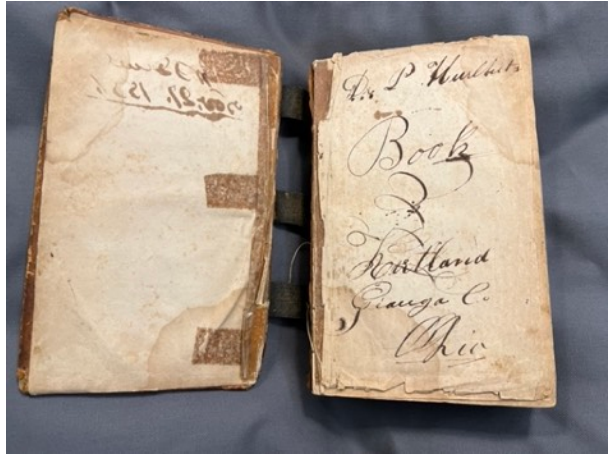 Dr. P. Hurlbuts
Book
Kirtland
Geauga Co
Ohio